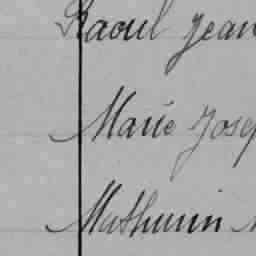 Raoul Jean
Marie Jose
Mathurin